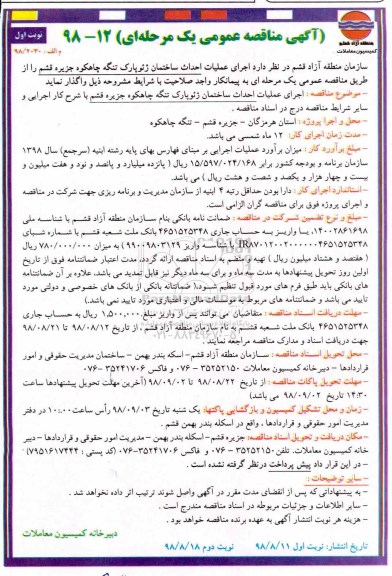 (آگهی مناقصه عمومی یک مرحله‌ای) ۱۲-۹۸
نوبت اول
م الف: ۹۸/۲۰۳۰
سازمان منطقه آزاد قشم
کمیسیون معاملات
سازمان منطقه آزاد قشم در نظر دارد اجرای عملیات احداث ساختمان ژئوپارک تنگه چاهکوه جزیره قشم را از
طریق مناقصه عمومی یک مرحله ای به پیمانکار واجد صلاحیت با شرایط مشروحه ذیل واگذار نماید
- موضوع مناقصه : اجرای عملیات احداث ساختمان ژئوپارک تنگه چاهکوه جزیره قشم با شرح کار اجرایی و
سایر شرایط مناقصه درج در اسناد مناقصه .
- محل و اجرا پروژه : استان هرمزگان - جزیره قشم - تنگه چاهکوه
- مدت زمان اجرای کار: ۱۲ ماه شمسی می باشد.
- مبلغ برآورد کار : میزان برآورد عملیات اجرایی بر مبنای فهارس بهای پایه رشته ابنیه (سرجمع) سال ۱۳۹۸
سازمان برنامه و بودجه کشور برابر ۱۵/۵۹۷/۰۲۴/۱۶۸ ریال ( پانزده میلیارد و پانصد و نود و هفت میلیون و
بیست و چهار هزار و یکصد و شصت و هشت ریال ) می باشد.
- استاندارد اجرای کار : دارا بودن حداقل رتبه ۴ ابنیه از سازمان مدیریت و برنامه ریزی جهت شرکت در مناقصه
و اجرای پروژه فوق برای مناقصه گران الزامی است.
- مبلغ و نوع تضمین شرکت در مناقصه : ضمانت نامه بانکی بنام سازمان منطقه آزاد قشم با شناسه ملی
۱۴۰۰۲۸۶۱۶۹۸، یا واریز به حساب جاری ۴۶۵۱۵۲۵۳۴۸ بانک ملت شعبه قشم با شماره شبای
با شناسه واریز ۹۹۰۰۹۸۳۱۲۹ به میزان ۷۸۰/۰۰۰/۰۰۰ ریال
( هفتصد و هشتاد میلیون ریال ) تهیه و منضم به اسناد مناقصه ارائه گردد، مدت اعتبار ضمانتنامه فوق از تاریخ
اولین روز تحویل پیشنهادها به مدت سه ماه و برای سه ماه دیگر نیز قابل تمدید می باشد، علاوه بر آن ضمانتنامه
های بانکی باید طبق فرم های مورد قبول تنظیم شود.( ضمانتنامه بانکی از بانک های خصوصی و دولتی مورد
تایید می باشد و ضمانتنامه های مربوط به موسسات مالی و اعتباری مورد تایید نمی باشد).
- مهلت دریافت اسناد مناقصه : متقاضیان می توانند پس از واریز مبلغ ۱,۵۰۰,۰۰۰ ریال به حساب جاری
۴۶۵۱۵۲۵۳۴۸ بانک ملت شعبه قشم به نام سازمان منطقه آزاد قشم ، از تاریخ ۹۸/۰۸/۱۲ تا ۹۸/۰۸/۲۱
جهت دریافت اسناد و مدارک مناقصه مراجعه نمایند .
- محل تحویل اسناد مناقصه : سازمان منطقه آزاد قشم - اسکه بندر بهمن - ساختمان مدیریت حقوقی و امور
قراردادها - دبیرخانه کمیسیون معاملات ۳۵۲۵۲۱۵۰ - ۰۷۶ و فاکس ۳۵۲۴۱۷۰۶ -۰۷۶
- مهلت تحویل پاکات مناقصه : از تاریخ ۹۸/۰۸/۲۲ تا ۹۸/۰۹/۰۲ (آخرین مهلت تحویل پیشنهادها ساعت
۱۴:۳۰ تاریخ ۹۸/۰۹/۰۲ می باشد)
- زمان و محل تشکیل کمیسیون و بازگشایی پاکتها: یک شنبه تاریخ ۹۸/۰۹/۰۳ رأس ساعت ۱۰:۰۰ در دفتر
مدیریت امور حقوقی و قراردادها ، واقع در اسکله بندر بهمن قشم .
- مکان دریافت و تحویل اسناد مناقصه: جزیره قشم - اسکله بندر بهمن - مدیریت امور حقوقی و قراردادها - دبیر
خانه کمیسیون معاملات. تلفن ۳۵۲۵۲۱۵۰ - ۰۷۶ و فاکس ۳۵۲۴۱۷۰۶-۰۷۶ (کد پستی : ۷۹۵۱۶۱۷۴۴۲)
- در این قرار داد پیش پرداخت درنظر گرفته نشده است .
- سایر توضیحات :
- به پیشنهاداتی که پس از انقضای مدت مقرر در آگهی واصل شوند ترتیب اثر داده نخواهد شد .
- سایر اطلاعات و جزئیات مربوطه در اسناد مناقصه مندرج است .
- هزینه هر نوبت انتشار آگهی به عهده برنده مناقصه خواهد بود .
دبیرخانه کمیسیون معاملات
تاریخ انتشار: نوبت اول ۹۸/۸/۱۱ نوبت دوم ۹۸/۸/۱۸